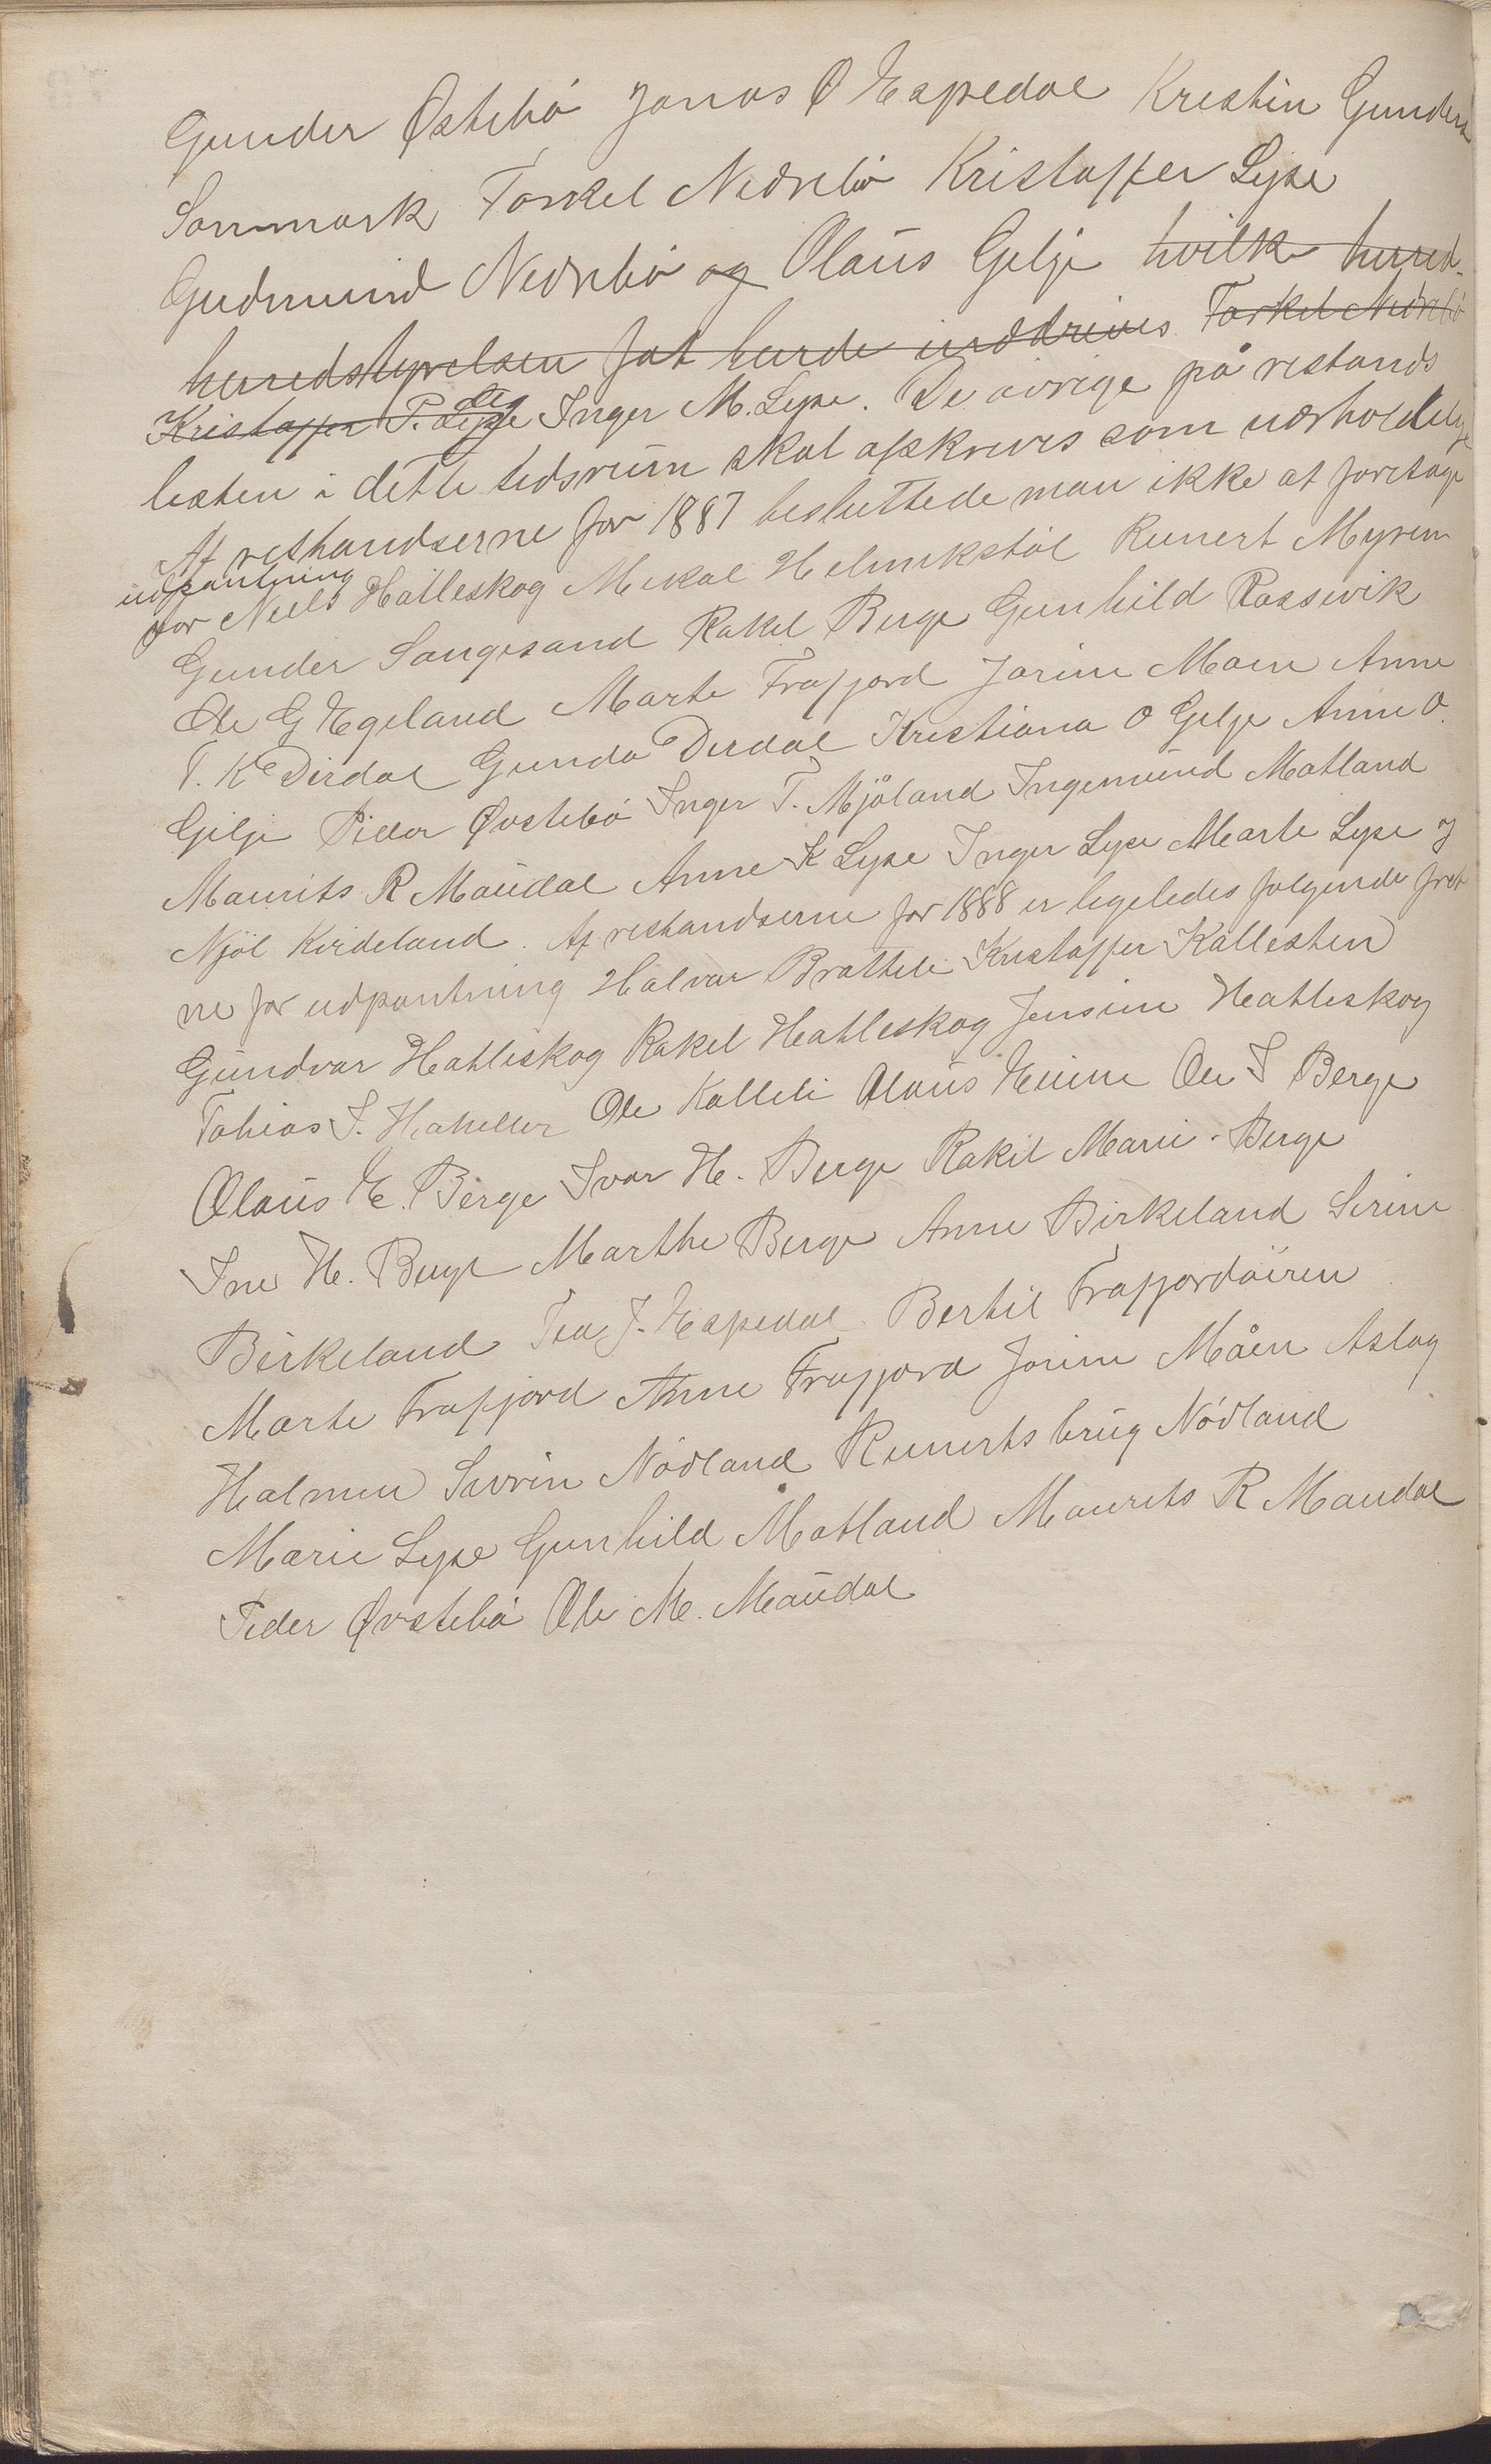 Gunder Östebö Jonas O Espedal Kristin Gunders
Sanmark Torkel Nedrebö Kristoffer Lyse
Gudmund Nedrebö og Olaus Gilje hvilke herred-
herredstyrelsen fat burde inddrives Torkel Nedrebö
Kristoffer P. Lyse og Inger M. Lyse. De øvrige på restands
listen i dette tidsrum skal afskrives som uerholdelige
Af resthandserne for 1887 besluttede man ikke at foretage
udpantning
for Niels Hatleskog Mikal Helmikstöl Reinert Myren
Gunder Sangesand Rakel Berge Gunhild Rossevik
Ole G Egeland Marte Frafjord Jorine Moen Anne
T. K Dirdal Gunda Dirdal Kristiana O Gilje Anne O.
Gilje Peder Øvstebö Inger T. Mjöland Ingemund Matland
Maurits R Maudal Anne K Lyse Inger Lyse Marte Lyse &
Njöl Kirdeland. Af restandserne for 1888 er ligeledes følgende fret
ne for udpantning Halvar Bratteli Kristoffer Kallesten
Gundvar Hatleskog Rakel Hatleskog Jensine Hatleskog
Tobias T. Haheller Ole Kalleli Olaus Eiane Ole T Berge
Olaus E. Berge Ivar H. Berge Rakel Marie Berge
Ine H. Berge Marthe Berge Anne Birkeland Serine
Birkeland Tea J. Espedal Bertil Frafjordöiren
Marte Frafjord Anne Frafjord Jorine Måen Aslag
Halmen Sivrin Nödland Reinerts brug Nödland
Marie Lyse Gunhild Matland Maurits R Maudal
Peder Øvstebö Ole M. Maudal